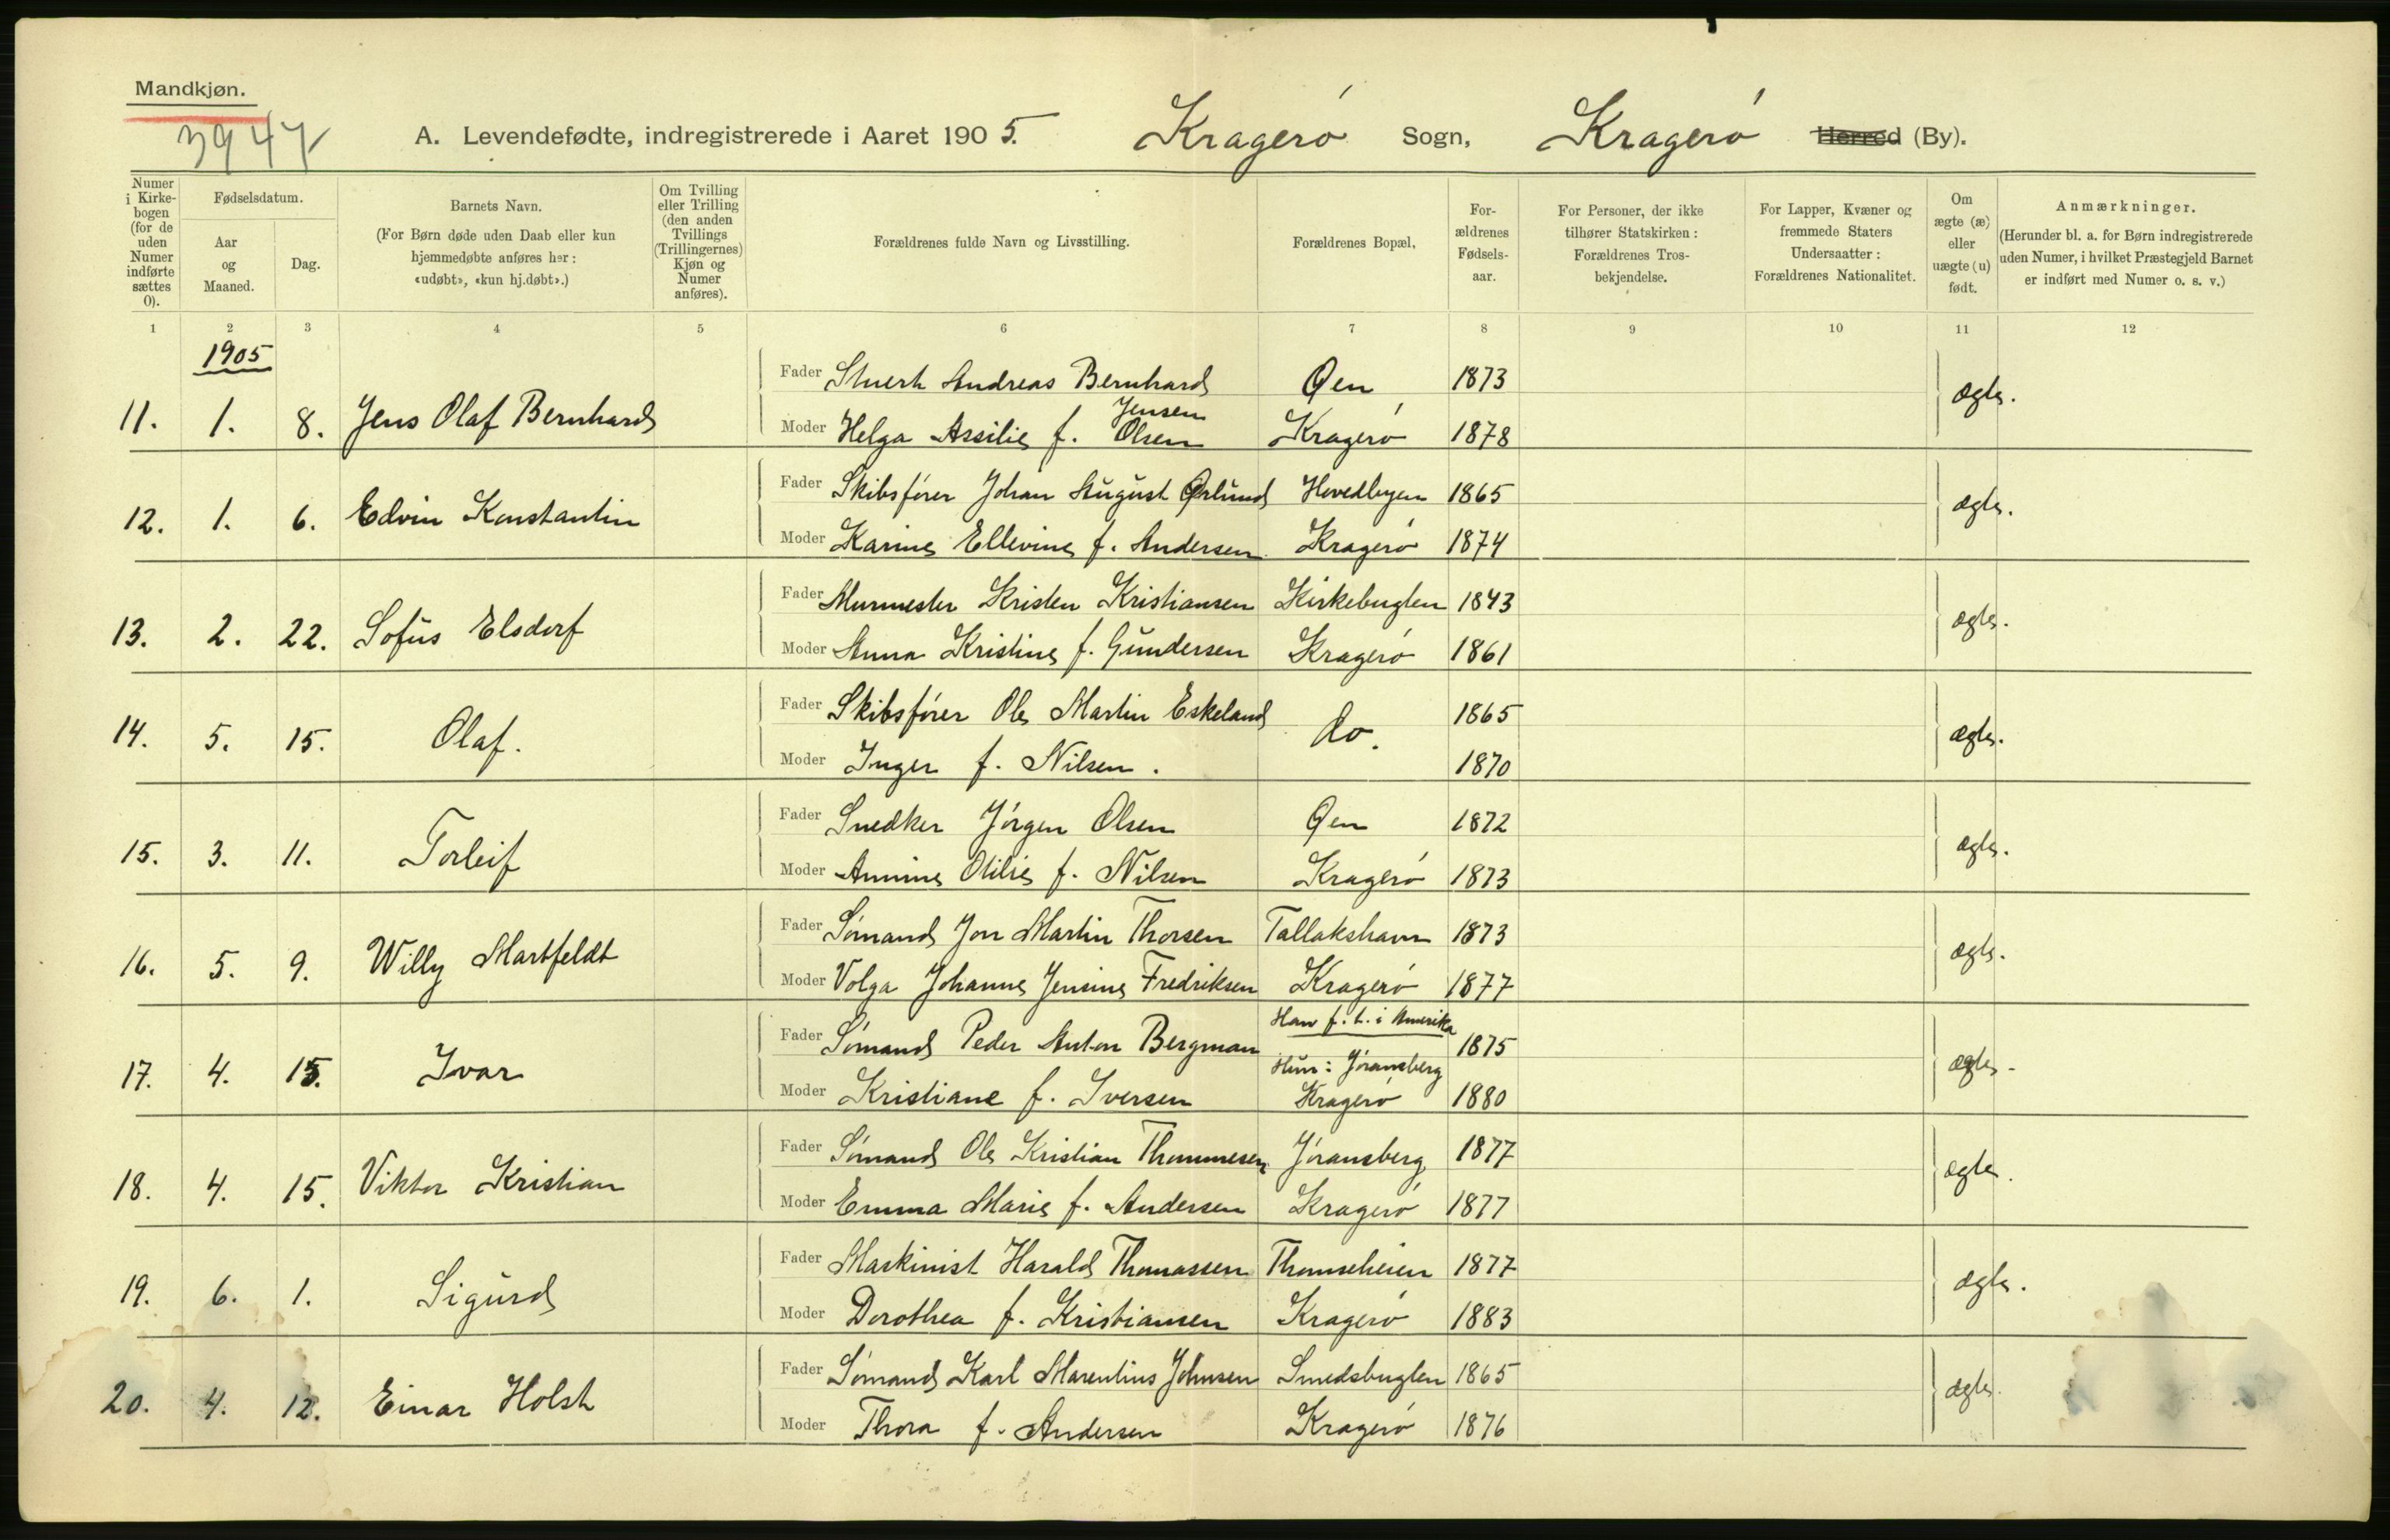 Mandkjøn.
3947
A. Levendefødte, indregistrerede i Aaret 1905. Kragerø Sogn, Kragerø Herred (By).
Numer i Kirkebogen (for de uden Numer indførte sættes 0).
Fødselsdatum.
Aar og Maaned.
Dag.
Barnets Navn.
(For Børn døde uden Daab eller kun hjemmedøbte anføres her: «udøbt», «kun hj.døbt».)
Om Tvilling eller Trilling (den anden Tvillings (Trillingernes) Kjøn og Numer anføres).
Forældrenes fulde Navn og Livsstilling.
Forældrenes Bopæl,
Forældrenes Fødselsaar.
For Personer, der ikke tilhører Statskirken: Forældrenes Trosbekjendelse.
For Lapper, Kvæner og fremmede Staters Undersaatter: Forældrenes Nationalitet.
Om ægte (æ) eller uægte (u) født.
Anmærkninger.
(Herunder bl. a. for Børn indregistrerede uden Numer, i hvilket Præstegjeld Barnet er indført med Numer o. s. v.)
1 2 3 4 5 6 7 8 9 10 11 12
1905
Fader Stuert Andreas Bernhard Øen 1873
11. 1. 8. Jens Olaf Bernhard ægte.
Jensen
Moder Helga Assilie f. Olsen Kragerø 1878
Fader Skibsfører Johan August Ørlund Hovedbyen 1865
12. 1. 6. Edvin Konstantin ægte.
Moder Karine Ellevine f. Andersen Kragerø 1874
Fader Murmester Kristen Kristiansen Kirkebugten 1843
13. 2. 22. Sofus Elsdorf ægte.
Moder Anna Kristine f. Gundersen Kragerø 1861
Fader Skibsfører Ole Martin Eskeland do. 1865
14. 5. 15. Olaf. ægte.
Moder Inger f. Nilsen. 1870
Fader Snedker Jørgen Olsen Øen 1872
15. 3. 11. Torleif ægte.
Moder Annine Otilie f. Nilsen Kragerø 1873
Fader Sømand Jon Martin Thorsen Tallakshavn 1873
16. 5. 9. Willy Martfeldt ægte.
Moder Volga Johanne Jensine Fredriksen Kragerø 1877
Han f. t. i Amerika
Fader Sømand Peder Anton Bergman 1875
Hun: Jøransberg
17. 4. 15. Ivar ægte.
Moder Kristiane f. Iversen Kragerø 1880
Fader Sømand Ole Kristian Thommesen Jøransberg 1877
18. 4. 15. Viktor Kristian ægte.
Moder Emma Marie f. Andersen Kragerø 1877
Fader Maskinist Harald Thomassen Thomseheien 1877
19. 6. 1. Sigurd ægte.
Moder Dorothea f. Kristiansen Kragerø 1883
Fader Sømand Karl Marentius Johnsen Smedsbugten 1865
20. 4. 12. Einar Holst ægte.
Moder Thora f. Andersen Kragerø 1876